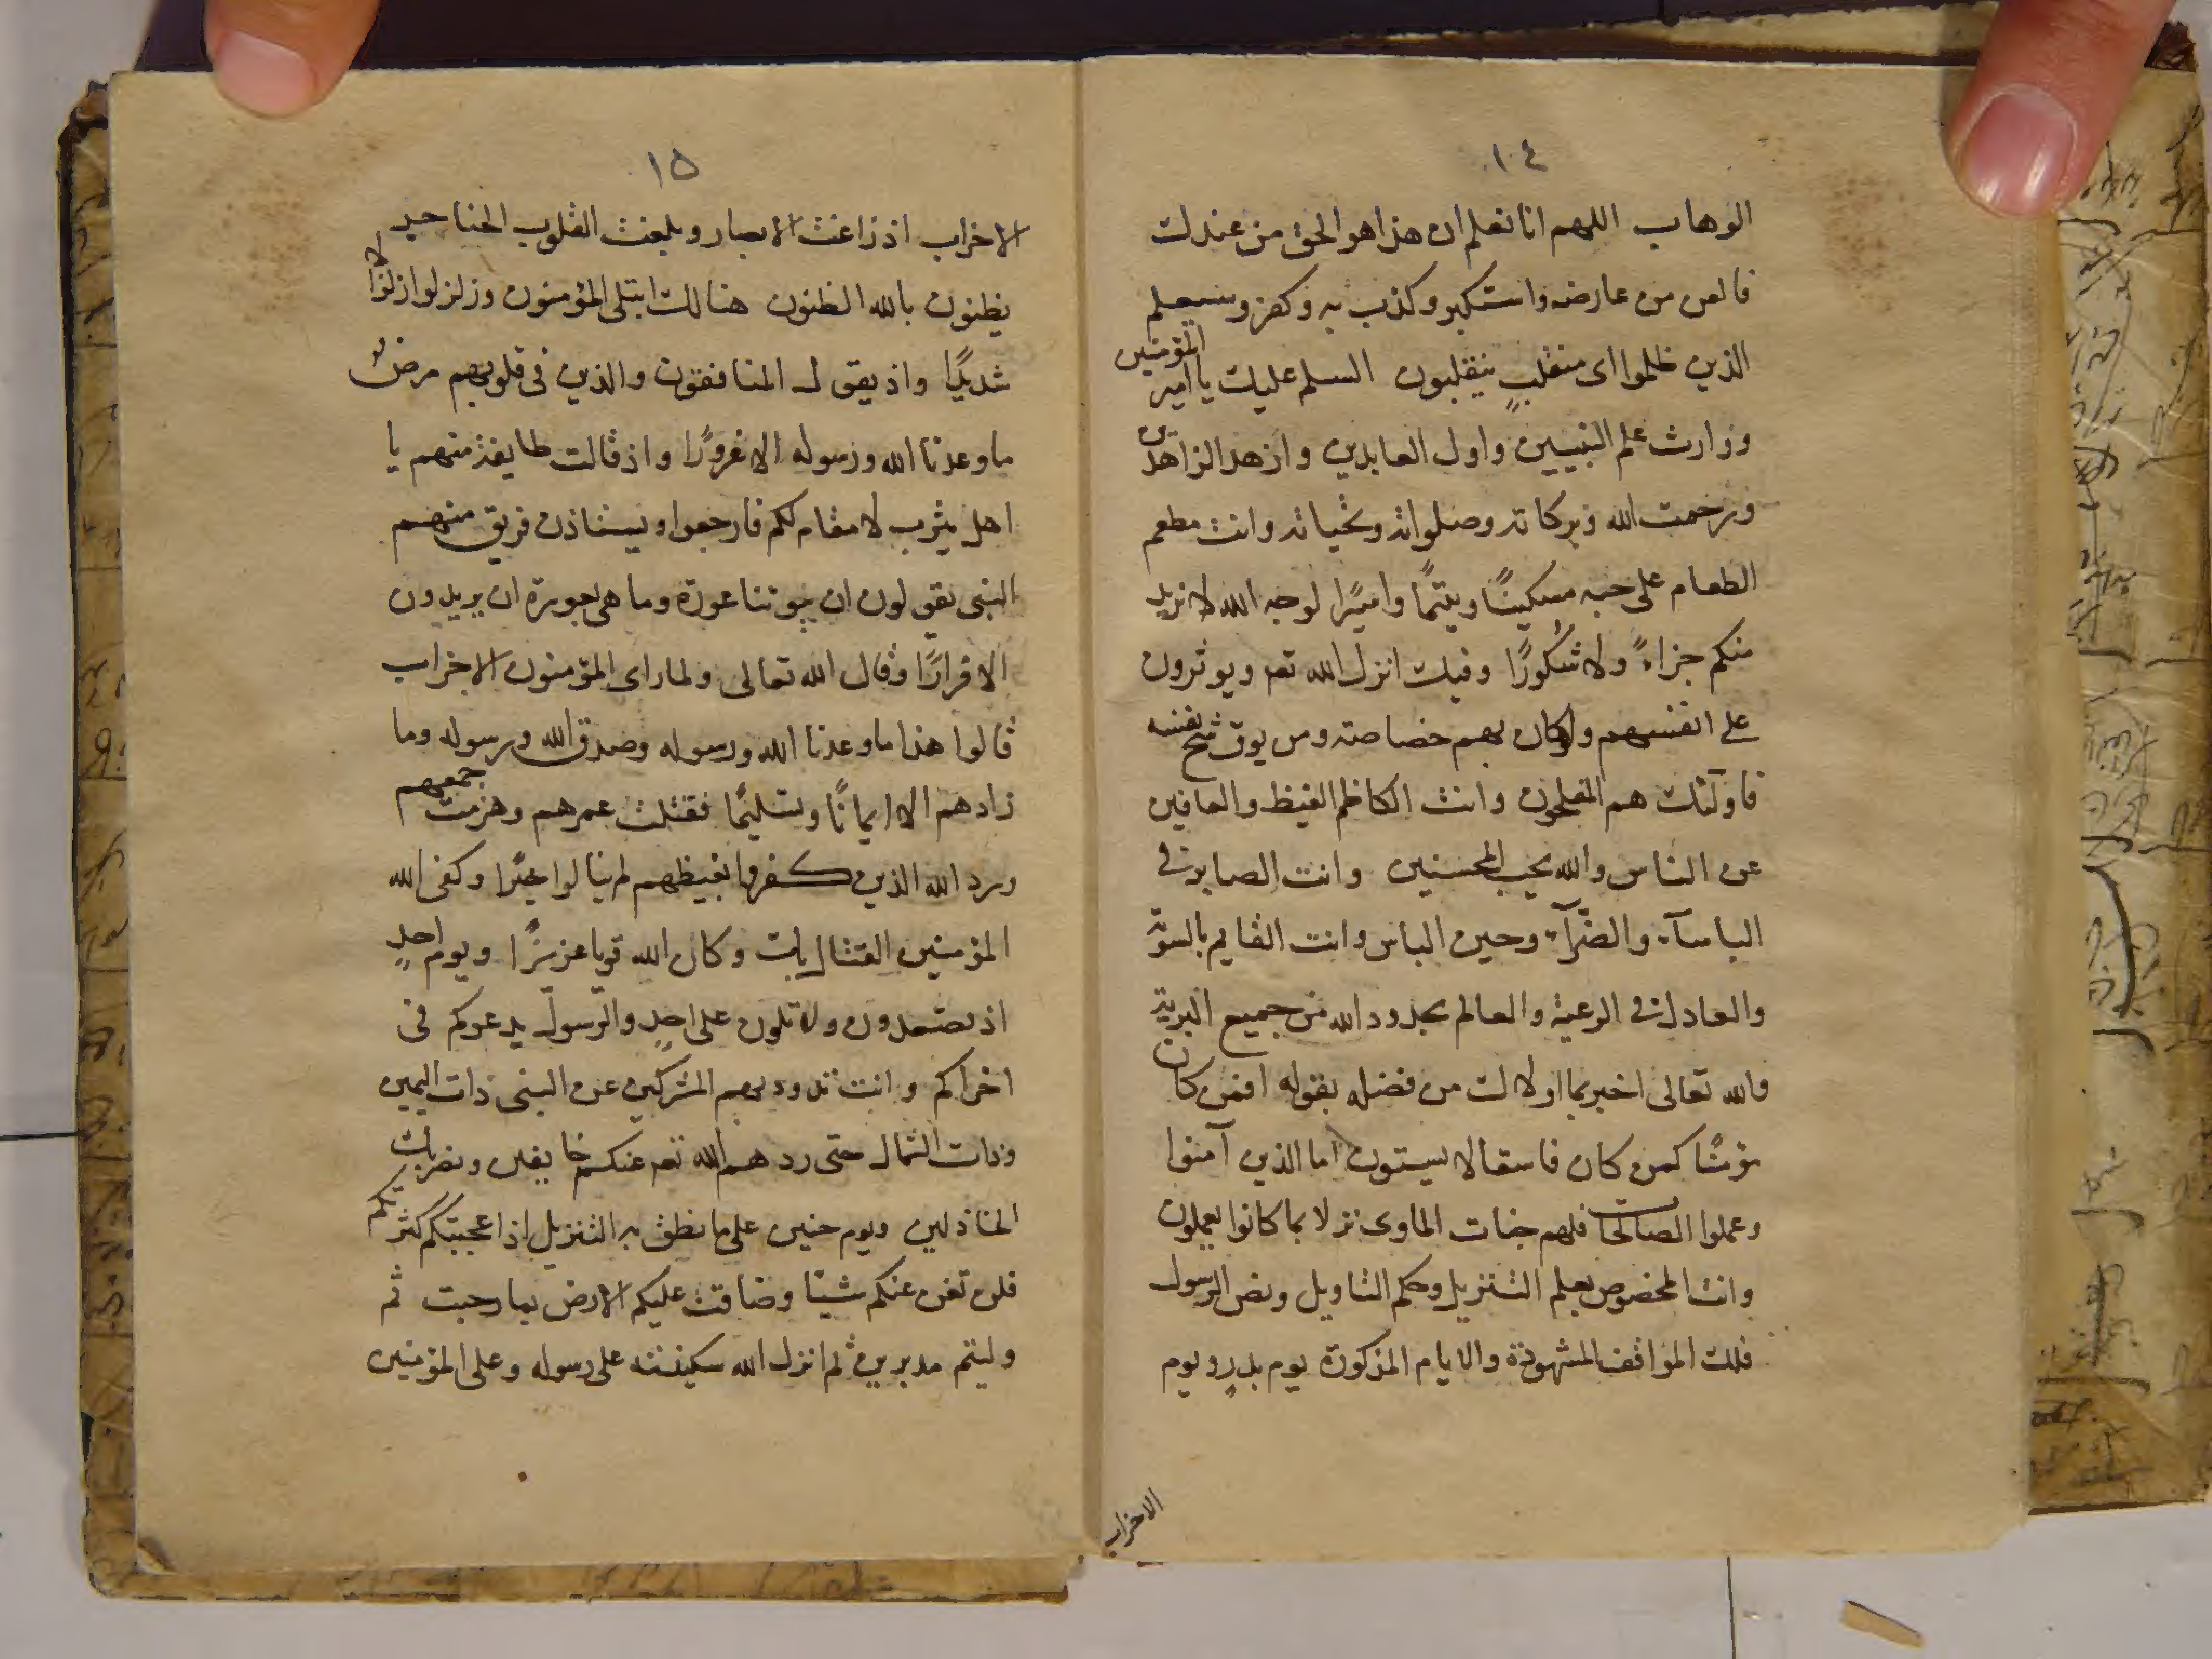 ١٤
الوهاب اللهم انا نعلم ان هذا هو الحق من عندك
فالعن من عارضه واستكبر وكذب به وكفر وسيعلم
الذين ظلموا اى منقلب ينقلبون السلم عليك يا امير المؤمنين
ووارث علم النبيين واول العابدين وازهد الزاهدين
ورحمت الله وبركاته وصلواته وتحياته وانت مطعم
الطعام على حبه مسكينًا ويتيمًا واسيرًا لوجه الله لا نريد
منكم جزاءً ولا شكورًا وفيك انزل الله تعه ويوثرون
على انفسهم ولوكان بهم خصاصته ومن يوق شح نفسه
فاولئك هم المفلحون وانت الكاظم الغيظ والعافين
عن الناس والله يحب المحسنين وانت الصابر فى
الباسآء والضرآء وحين الباس وانت القايم بالسوية
والعادل فى الرعية والعالم بحدود الله من جميع البرية
والله تعالى اخبر بما اولاك من فضله بقوله افمن كان
مؤمنًا كمن كان فاسقا لا يستون اما الذين آمنوا
وعملوا الصالحات فلهم جنات الماوى نزلا بما كانوا يعملون
وانت المخصوص بعلم التنزيل وحكم التاويل ونص الرسول
فلك المواقف المشهودة والايام المذكورة يوم بدرٍ ويوم
الاحزاب
١٥
الاحزاب اذ زاغت الابصار وبلغت القلوب الحناجر
يظنون بالله الظنون هنالك ابتلى المؤمنون وزلزلوا زلزالا
شديدًا واذ يقول المنافقون والذين فى قلوبهم مرض
ما وعدنا الله ورسوله الا غرورًا واذ قالت طايفة منهم يا
اهل يثرب لا مقام لكم فارجعوا ويستاذن فريق منهم
النبى يقولون ان بيوتنا عورة وما هى بعورة ان يريدون
الا فرارًا وقال الله تعالى ولما راى المؤمنون الاحزاب
قالوا هذا ما وعدنا الله ورسوله وصدق الله ورسوله وما
زادهم الا ايمانًا وتسليمًا فقتلت عمرهم وهزمت جمعهم
ورد الله الذين كفروا بغيظهم لم ينالوا خيرًا وكفى الله
المؤمنين القتال بك وكان الله قويا عزيزًا ويوم احدٍ
اذ تصعدون ولا تلون على احدٍ والرسول يدعوكم فى
اخراكم وانت تذود بهم المشركين عن النبى ذات اليمين
وذات الشمال حتى ردهم الله تعه عنكم خايفين ونصر بك
الخاذلين ويوم حنين على ما نطق به التنزيل اذ اعجبتكم كثرتكم
فلن تغن عنكم شيئا وضاقت عليكم الارض بما رحبت ثم
وليتم مدبرين ثم انزل الله سكينته على رسوله وعلى المؤمنين